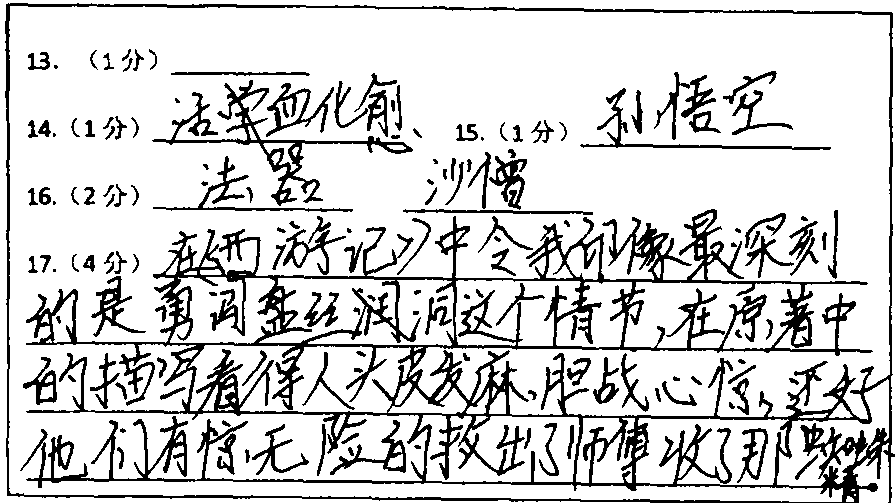 13. （1分）
14.（1分） 活学血化 15.（1分） 孙悟空
16.（2分） 法器 沙僧
17.（4分） 在《西游记》中令我印像最深刻
的是勇闯盘丝洞这个情节,在原著中
的描写看得人头皮发麻,胆战心惊,还好
他们有惊无险的救出了师傅收了那蜘蛛
精.